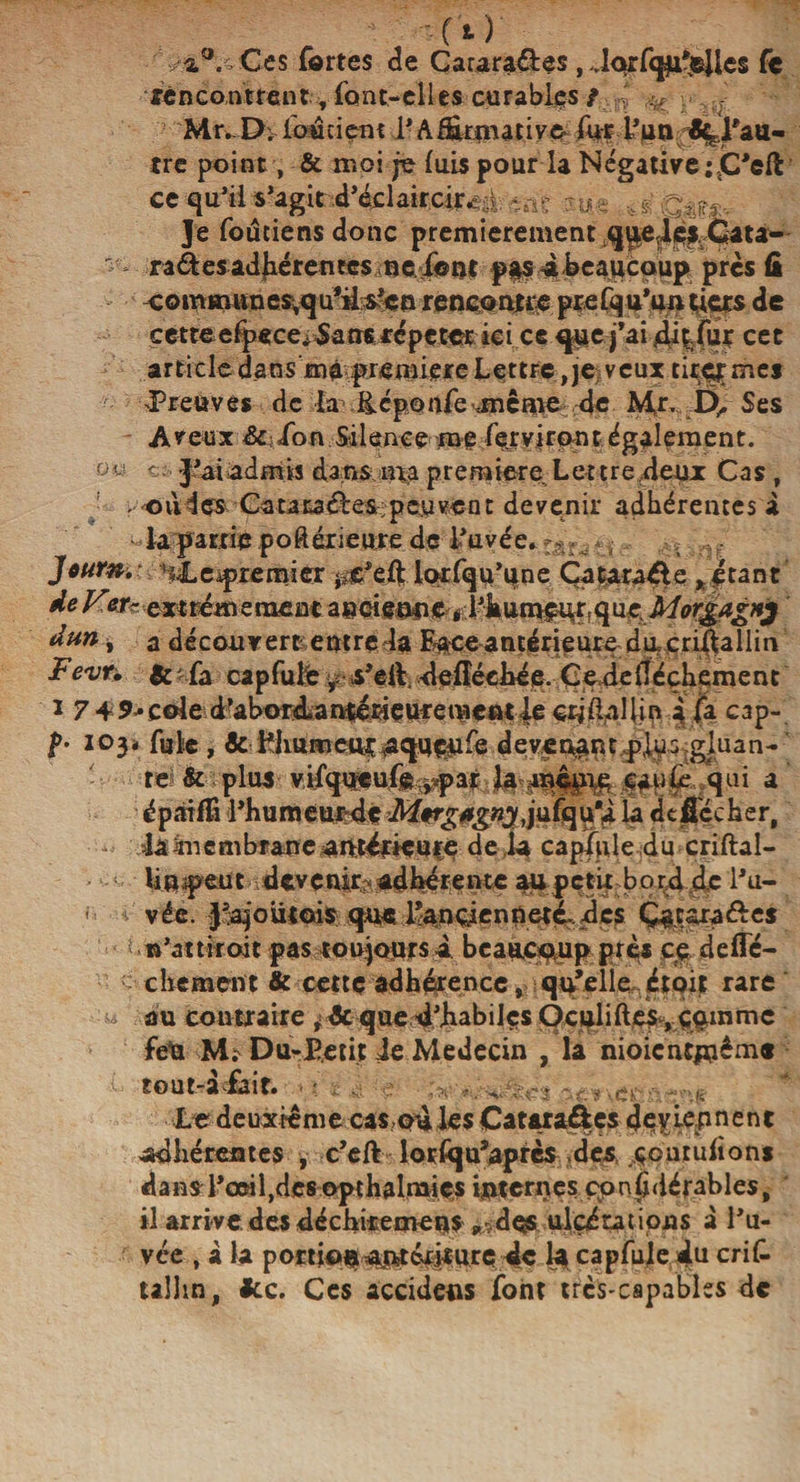 (2)
2°. Ces sortes de Cataractes, lorsqu'elles se
rencontrent, sont-elles curables ?
Mr. D. soûtient l'Affirmative sur l'un & l'au-
tre point, & moi je suis pour la Négative : C'est
ce qu'il s'agit d'éclaircir.
Je soûtiens donc premierement que les Cata-
ractes adhérentes ne sont pas à beaucoup près si
communes, qu'il s'en rencontre presqu'un tiers de
cette espece; Sans répeter ici ce que j'ai dit sur cet
article dans ma premiere Lettre, je veux tirer mes
Preuves de la Réponse même de Mr. D. Ses
Aveux & son Silence me serviront également.
J'ai admis dans ma premiere Lettre deux Cas,
où des Cataractes peuvent devenir adhérentes à
la partie postérieure de l'uvée.
Journ. Le premier c'est lorsqu'une Cataracte, étant
de Ver- extrémement ancienne, l'humeur, que Morgagny
dun, a découvert entre la Face antérieure du cristallin
Fevr. & sa capsule, s'est defléchée. Ce defléchement
1749. cole d'abord antérieurement le cristallin à sa cap-
p. 103. sule, & l'humeur aqueuse devenant plus gluan-
te & plus visqueuse, par la même cause, qui a
épaissi l'humeur de Morgagny, jusqu'à la deflécher,
la membrane antérieure de la capsule du cristal-
lin peut devenir adhérente au petit bord de l'u-
vée. J'ajoûtois que l'ancienneté des Cataractes
n'attiroit pas toujours à beaucoup près ce deflé-
chement & cette adhérence, qu'elle étoit rare
au contraire, & que d'habiles Oculistes, comme
feu M. Du-Petit le Medecin, la nioient même
tout-à-fait.
Le deuxiéme cas, où les Cataractes deviennent
adhérentes, c'est lorsqu'après des contusions
dans l'œil, des opthalmies internes considérables,
il arrive des déchiremens, des ulcérations à l'u-
vée, à la portion antérieure de la capsule du cris-
tallin, &c. Ces accidens sont très-capables de